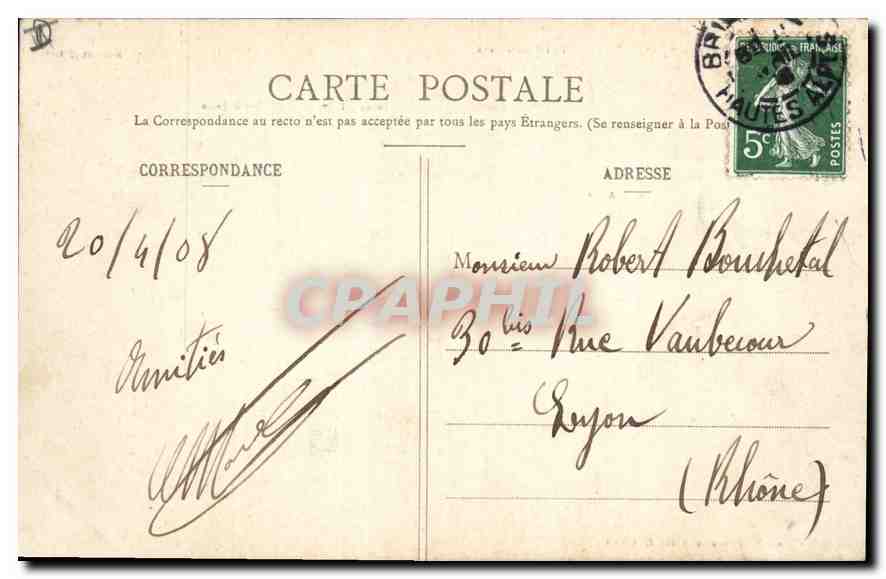 CARTE POSTALE
La Correspondance au recto n'est pas acceptée par tous les pays Étrangers. (Se renseigner à la Pos
CORRESPONDANCE
ADRESSE
20/4/08
Amitiés
Monsieur Robert Bouchetal
30 bis Rue Vaubecour
Lyon
(Rhône)
REPUBLIQUE FRANÇAISE
5c
POSTES
HAUTES ALPES
CPAPHIL